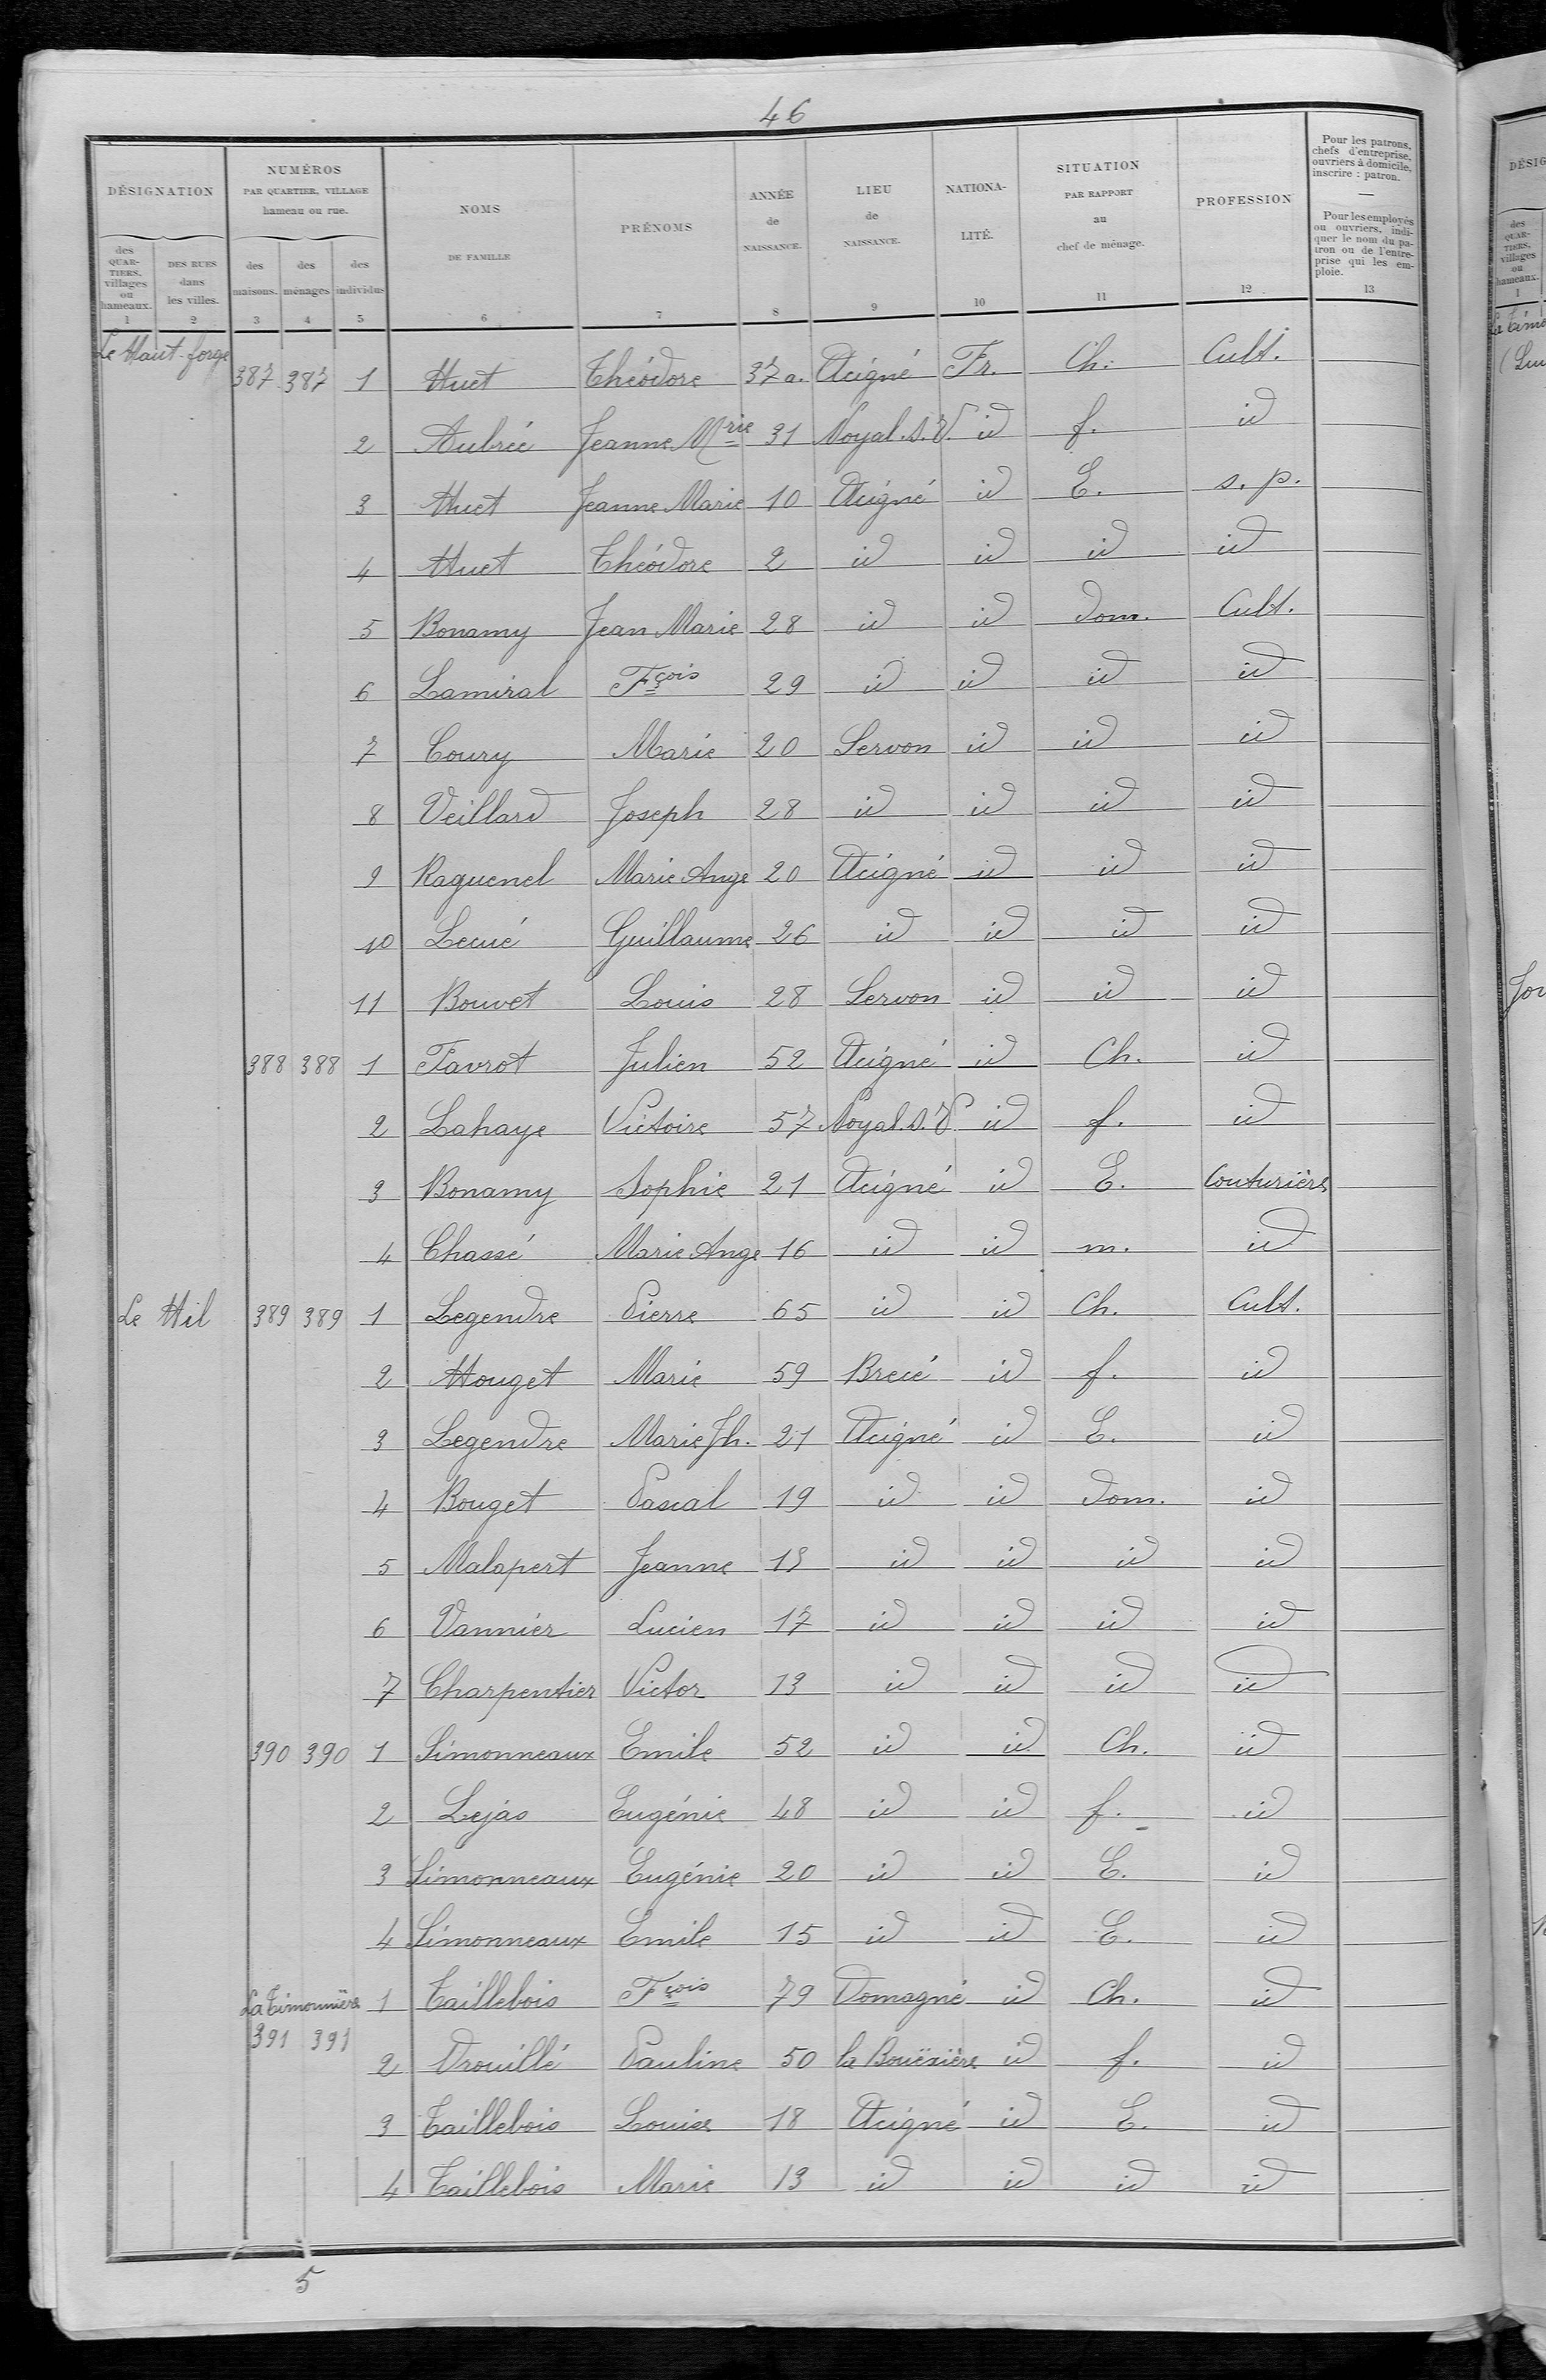 46
DÉSIGNATION
NUMÉROS
PAR QUARTIER, VILLAGE
hameau ou rue.
NOMS
DE FAMILLE
PRÉNOMS
ANNÉE
de
NAISSANCE.
LIEU
de
NAISSANCE.
NATIONA-
LITÉ.
SITUATION
PAR RAPPORT
au
chef de ménage.
PROFESSION
Pour les patrons,
chefs d'entreprise,
ouvriers à domicile,
inscrire : patron.
—
Pour les employés
ou ouvriers, indi-
quer le nom du pa-
tron ou de l'entre-
prise qui les em-
ploie.
des
QUAR-
TIERS,
villages
ou
hameaux.
DES RUES
dans
les villes.
des
maisons.
des
ménages
des
individus
1 2 3 4 5 6 7 8 9 10 11 12 13
Le Haut-forge 387 387 1 Huet Théodore 37 a. Acigné Fr. Ch. Cult.
2 Aubrée Jeanne Mrie 31 Noyal.s.V. id f. id
3 Huet Jeanne Marie 10 Acigné id E. s. p.
4 Huet Théodore 2 id id id id
5 Bonamy Jean Marie 28 id id dom. Cult.
6 Lamiral Fçois 29 id id id id
7 Coury Marie 20 Servon id id id
8 Veillard Joseph 28 id id id id
9 Raguenel Marie Ange 20 Acigné id id id
10 Lecué Guillaume 26 id id id id
11 Bouvet Louis 28 Servon id id id
388 388 1 Favrot Julien 52 Acigné id Ch. id
2 Lahaye Victoire 57 Noyal.s.V. id f. id
3 Bonamy Sophie 21 Acigné id E. Couturière
4 Chassé Marie Ange 16 id id m. id
Le Hil 389 389 1 Legendre Pierre 65 id id Ch. Cult.
2 Houget Marie 59 Brecé id f. id
3 Legendre Marie Jh. 21 Acigné id E. id
4 Bouget Pascal 19 id id dom. id
5 Malapert Jeanne 13 id id id id
6 Vannier Lucien 17 id id id id
7 Charpentier Victor 13 id id id id
390 390 1 Simonneaux Emile 52 id id Ch. id
2 Lejas Eugénie 48 id id f. id
3 Simonneaux Eugénie 20 id id E. id
4 Simonneaux Emile 15 id id E. id
La Timonnière 1 Taillebois Fçois 79 Domagné id Ch. id
391 391
2 Drouillé Pauline 50 la Bouëxière id f. id
3 Taillebois Louise 18 Acigné id E. id
4 Taillebois Marie 13 id id id id
5